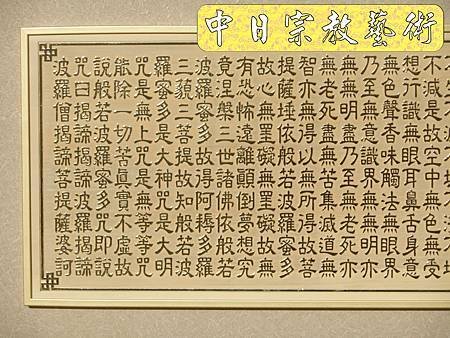 中日宗教藝術
不減是故空中無色無受
想行識無眼耳鼻舌身意
無色聲香味觸法無眼界
乃至無意識界無無明亦
無無明盡乃至無老死亦
無老死盡無苦集滅道無
智亦無得以無所得故菩
提薩埵依般若波羅蜜多
故心無罣礙無罣礙故無
有恐怖遠離顛倒夢想究
竟涅槃三世諸佛依般若
波羅蜜多故得阿耨多羅
三藐三菩提故知般若波
羅蜜多是大神咒是大明
咒是無上咒是無等等咒
能除一切苦真實不虛故
說般若波羅蜜多咒即說
咒曰揭諦揭諦波羅揭諦
波羅僧揭諦菩提薩婆訶